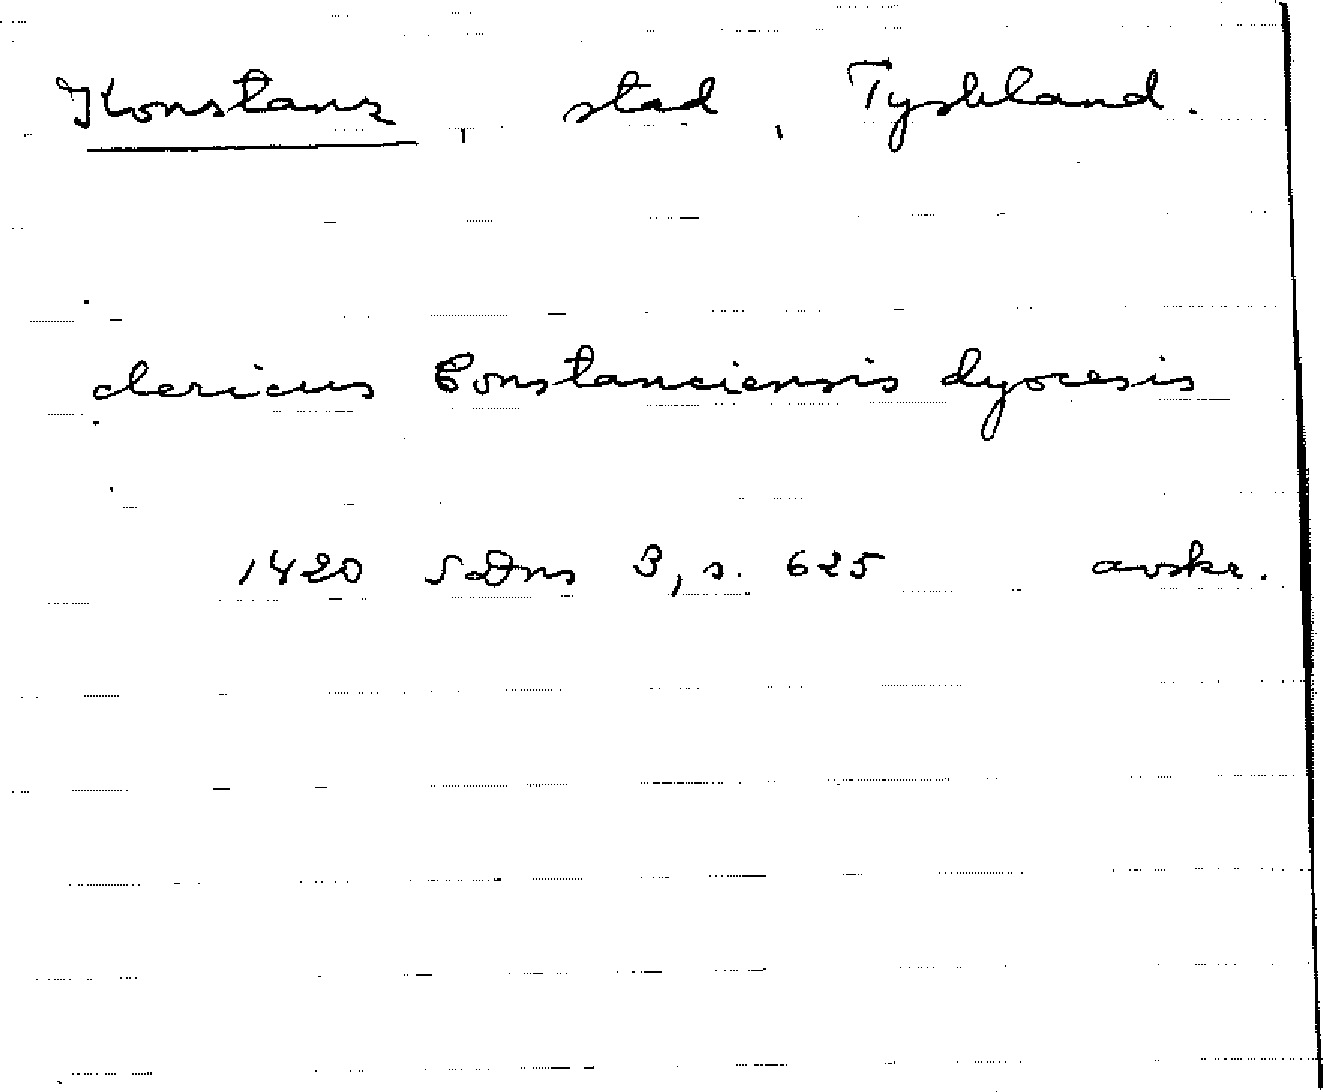 Konstanz, stad, Tyskland.
clericus Constanciensis dyocesis
1420 SDns 3, s. 625 avskr.